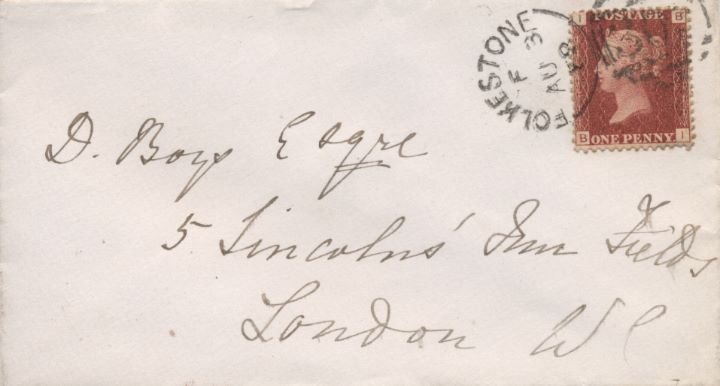 FOLKESTONE
F
AU 3
78
I B
POSTAGE
ONE PENNY
B I
D. Boys Esqre
5 Lincolns' Inn Fields
London WC